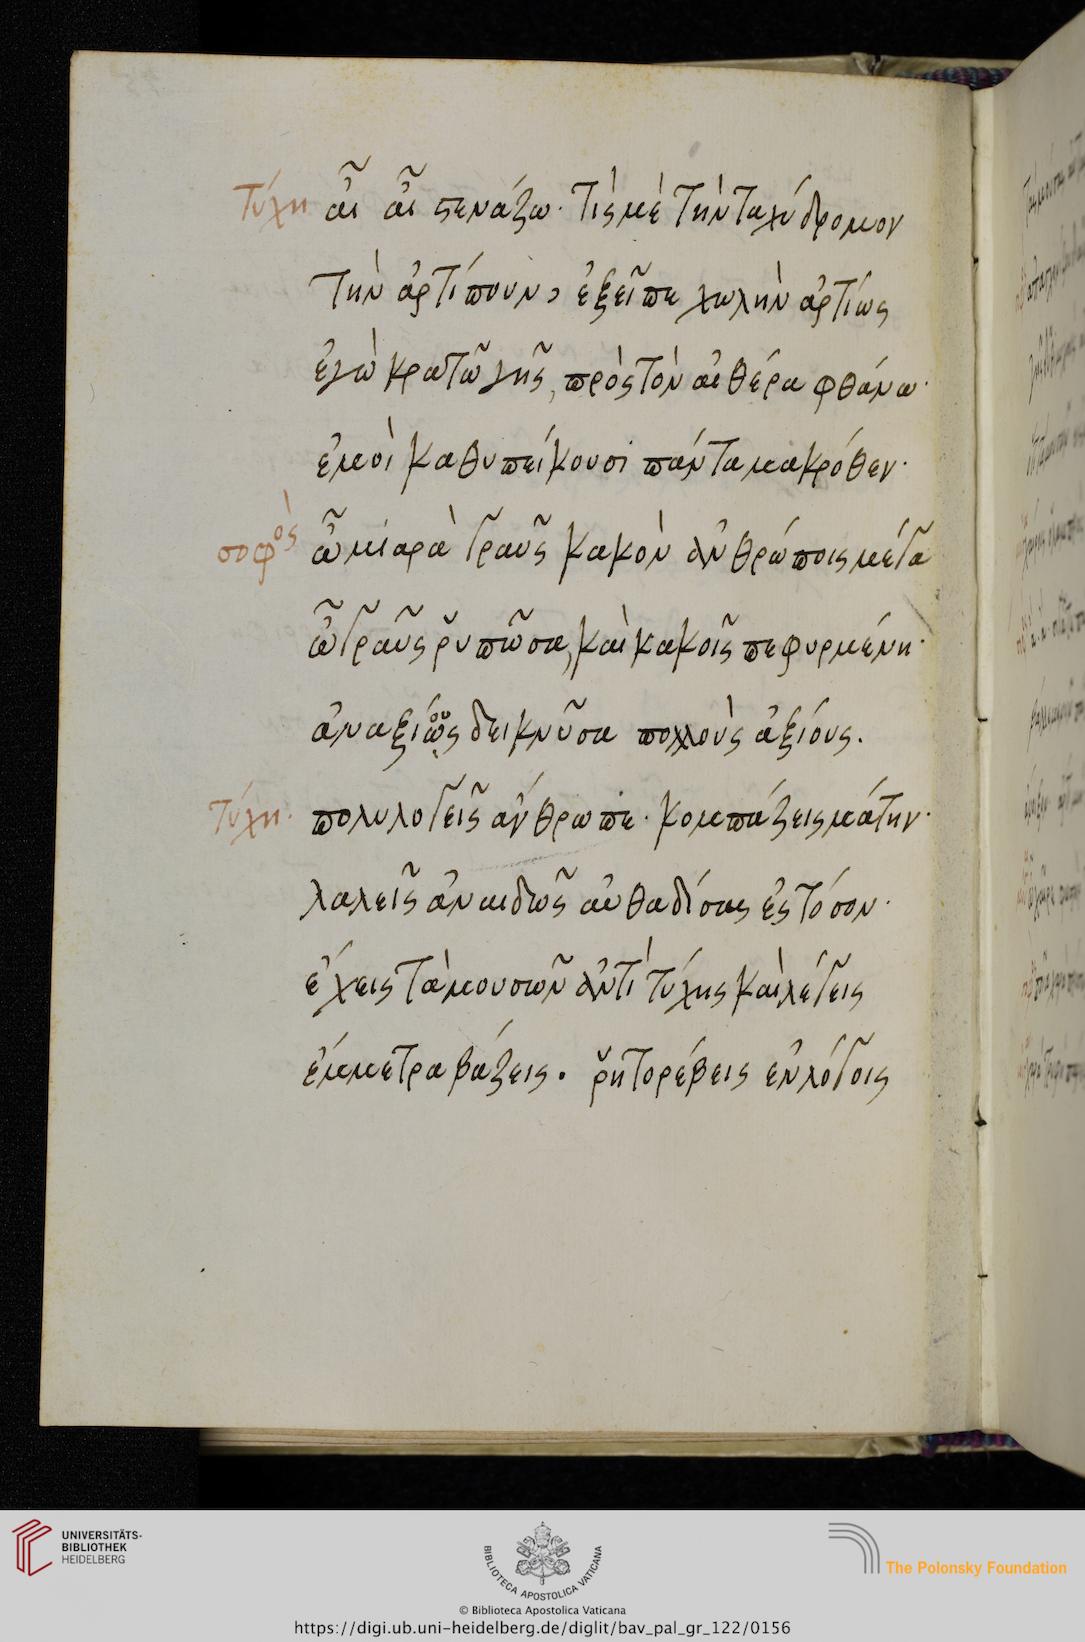 Τύχη αἶ αἶ στενάζω· τίς μὲ τὴν ταχύδρομον
τὴν ἀρτίπουν, ἐξεῖπε χωλὴν ἀρτίως
ἐγὼ κρατῶ γῆς, πρὸς τὸν αἰθέρα φθάνω·
ἐμοὶ καθυπείκουσι πάντα μακρόθεν·
σοφὸς ὦ μιαρὰ γραῦς κακὸν ἀνθρώποις μέγα
ὦ γραῦς ῥυπῶσα, καὶ κακοῖς πεφυρμένη·
ἀναξίως δεικνῦσα πολλοὺς ἀξίους.
Τύχη· πολυλογεῖς ἄνθρωπε· κομπάζεις μάτην·
λαλεῖς ἀναιδῶς αὐθαδίσας ἐς τόσον·
ἔχεις τὰ μουσῶν ἀντὶ τύχης καὶ λέγεις
ἔμμετρα βάζεις. ῥητορέβεις ἐν λόγοις
UNIVERSITÄTS-
BIBLIOTHEK
HEIDELBERG
BIBLIOTECA APOSTOLICA VATICANA
The Polonsky Foundation
© Biblioteca Apostolica Vaticana
https://digi.ub.uni-heidelberg.de/diglit/bav_pal_gr_122/0156